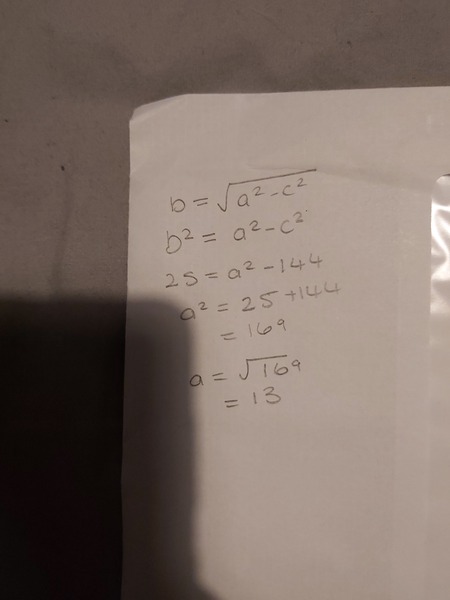 b = √a² - c²
b² = a² - c²
25 = a² - 144
a² = 25 + 144
= 169
a = √169
= 13